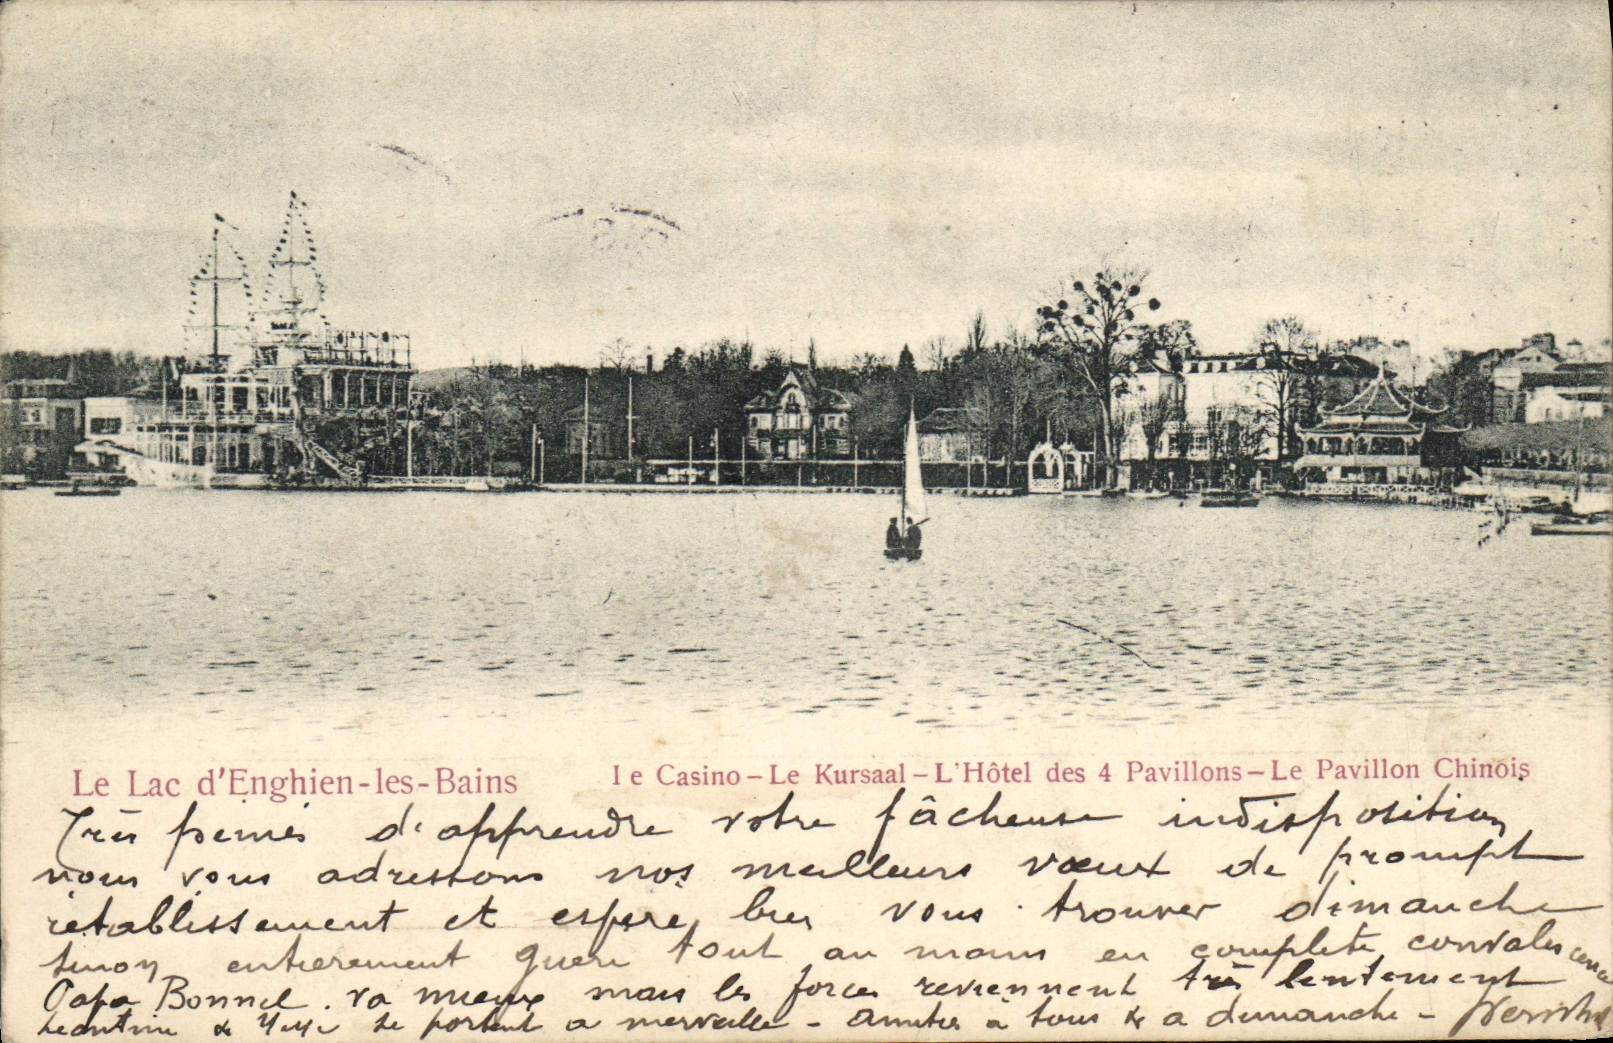 Le Lac d'Enghien-les-Bains
Ie Casino – Le Kursaal – L'Hôtel des 4 Pavillons – Le Pavillon Chinois
Très peinés d'apprendre votre fâcheuse indisposition
nous vous adressons nos meilleurs vœux de prompt
rétablissement et espère bien vous trouver dimanche
sinon entierement gueri tout au moins en complete convalescence
Papa Bonnel va mieux mais les forces reviennent très lentement
Leontine & se portent a merveille - Amities à tous & a dimanche -